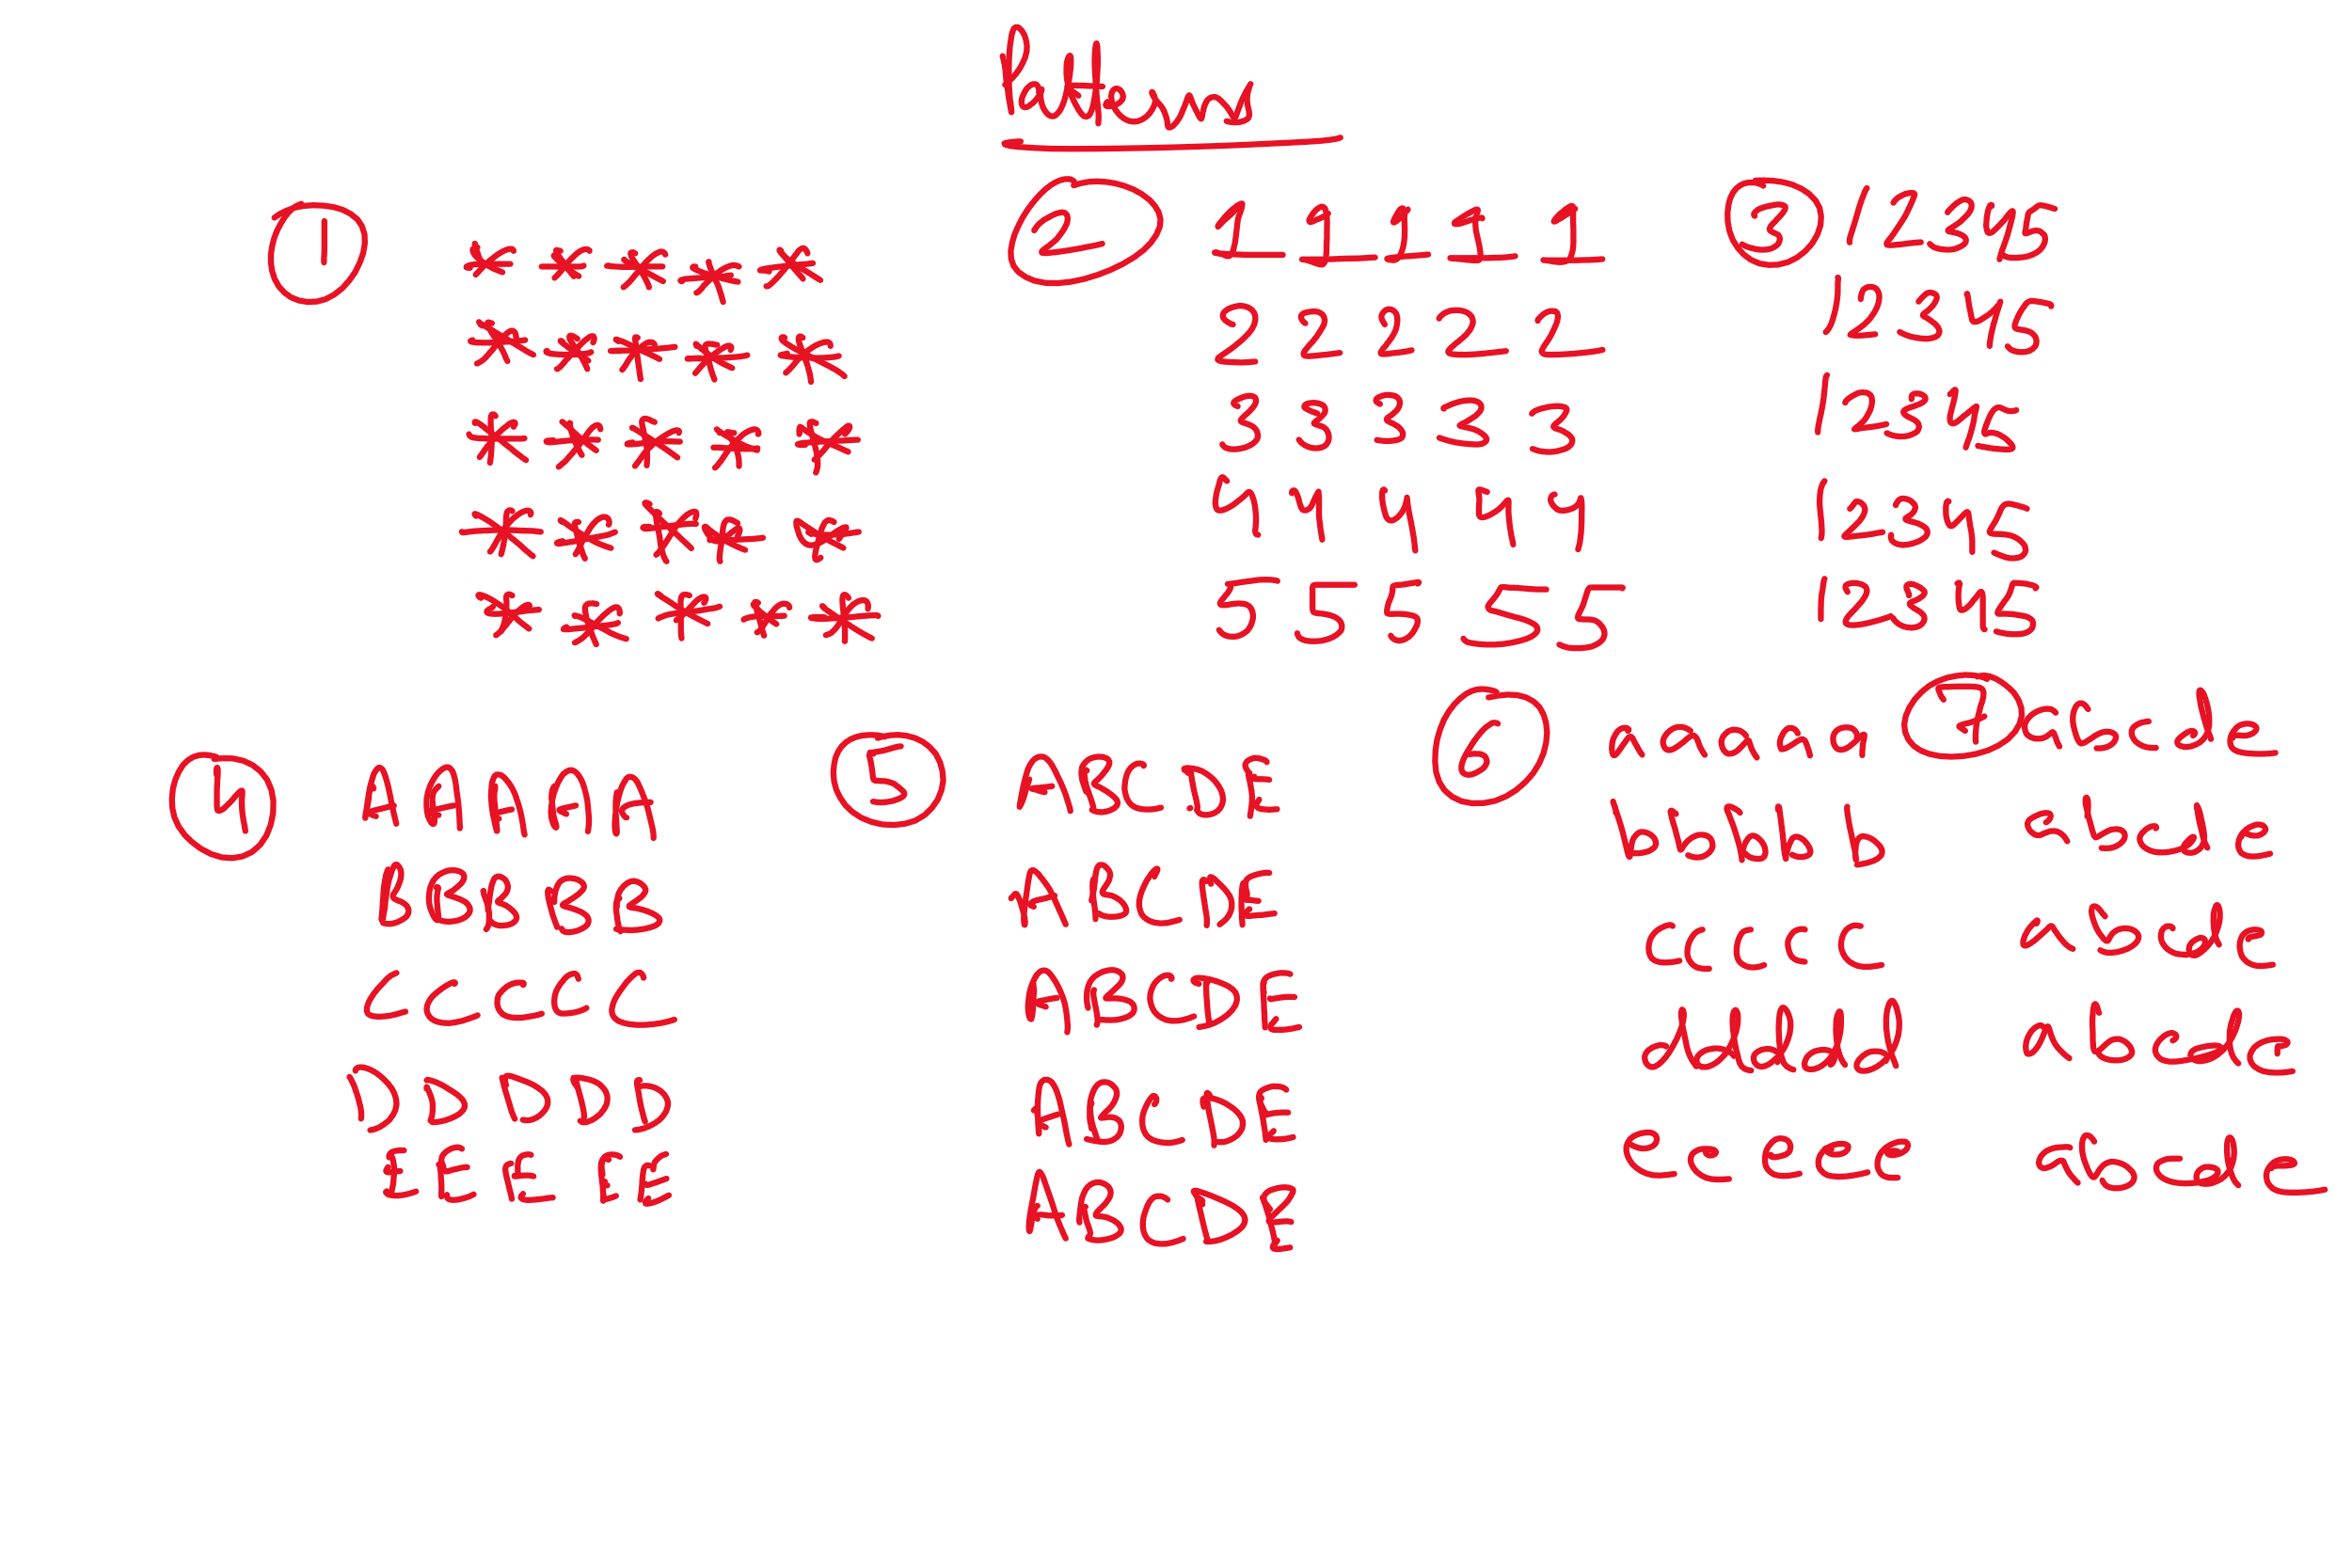 Patterns
1
* * * * *
* * * * *
* * * * *
* * * * *
* * * * *
2
1 1 1 1 1
2 2 2 2 2
3 3 3 3 3
4 4 4 4 4
5 5 5 5 5
3
1 2 3 4 5
1 2 3 4 5
1 2 3 4 5
1 2 3 4 5
1 2 3 4 5
4
A A A A A
B B B B B
C C C C C
D D D D D
E E E E E
5
A B C D E
A B C D E
A B C D E
A B C D E
A B C D E
6
a a a a a
b b b b b
c c c c c
d d d d d
e e e e e
7
a b c d e
a b c d e
a b c d e
a b c d e
a b c d e